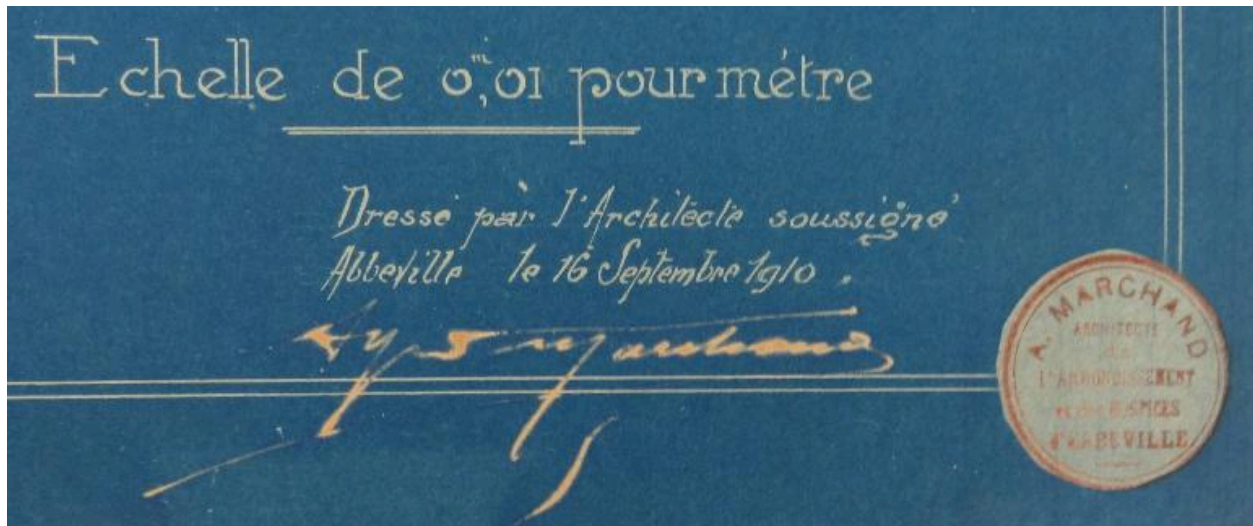 Echelle de 0,ᵐ01 pour mètre
Dressé par l'Architecte soussigné
Abbeville le 16 Septembre 1910.
Marchand
A. MARCHAND
ARCHITECTE
de
L'ARRONDISSEMENT
ET DES HOSPICES
D'ABBEVILLE